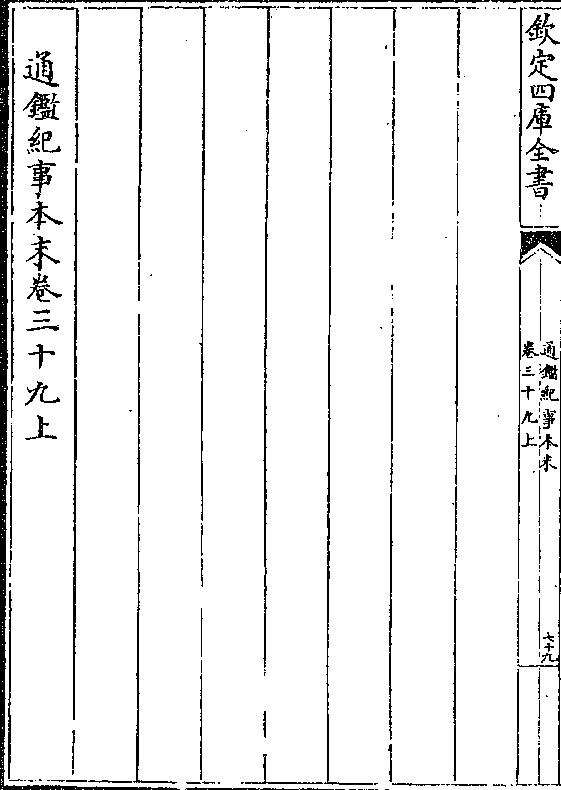 欽定四庫全書
通鑑紀事本末
卷三十九上
七十九
通鑑紀事本末卷三十九上